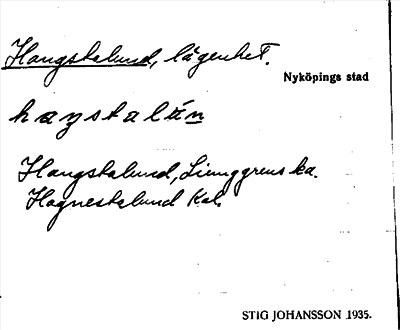 Hangstalund, lägenhet.
Nyköpings stad
haŋstalún
Hangstalund, Ljunggrens ka.
Hagnestalund Kal.
STIG JOHANSSON 1935.